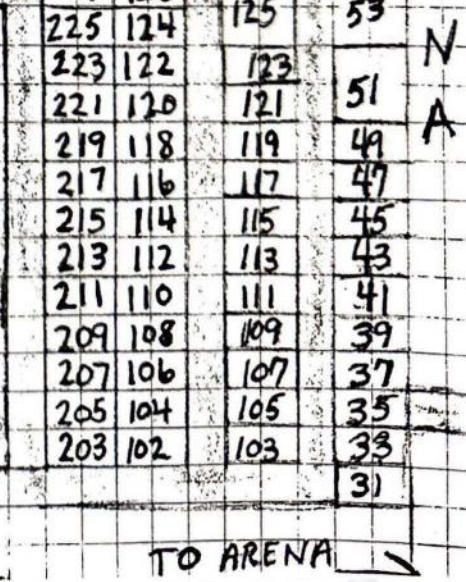 125 53
225 124
N
223 122 123
51
221 120 121
A
219 118 119 49
217 116 117 47
215 114 115 45
213 112 113 43
211 110 111 41
209 108 109 39
207 106 107 37
205 104 105 35
203 102 103 33
31
TO ARENA